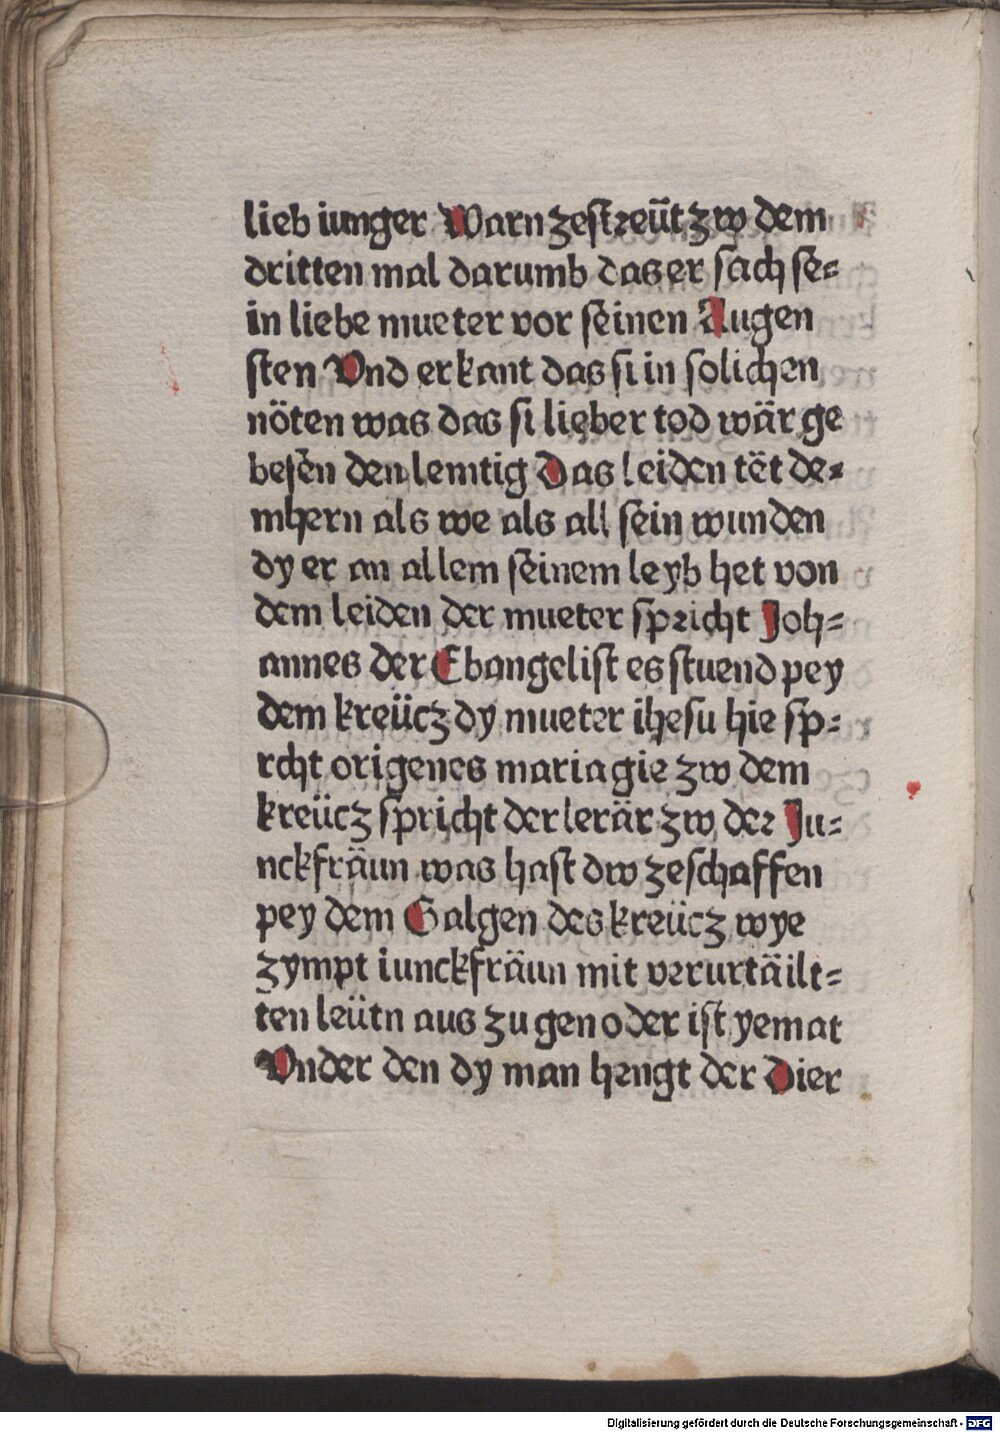 lieb iunger Warn zestreüt zw dem
dritten mal darumb das er sach se=
in liebe mueter vor seinen Augen
sten Vnd erkant das si in solichen
nöten was das si lieber tod wär ge
besen den lemtig Das leiden tët de=
mhern als we als all sein wunden
dy er an allem seinem leyb het von
dem leiden der mueter spricht Joh=
annes der Ebangelist es stuend pey
dem kreücz dy mueter ihesu hie sp=
rcht origenes maria gie zw dem
kreücz spricht der lerär zw der Ju=
nckfräun was hast dw zeschaffen
pey dem Galgen des kreücz wye
zympt iunckfräun mit verurtäilt=
ten leütn aus zu gen oder ist yemat
Vnder den dy man hengt der Dier
Digitalisierung gefördert durch die Deutsche Forschungsgemeinschaft - DFG